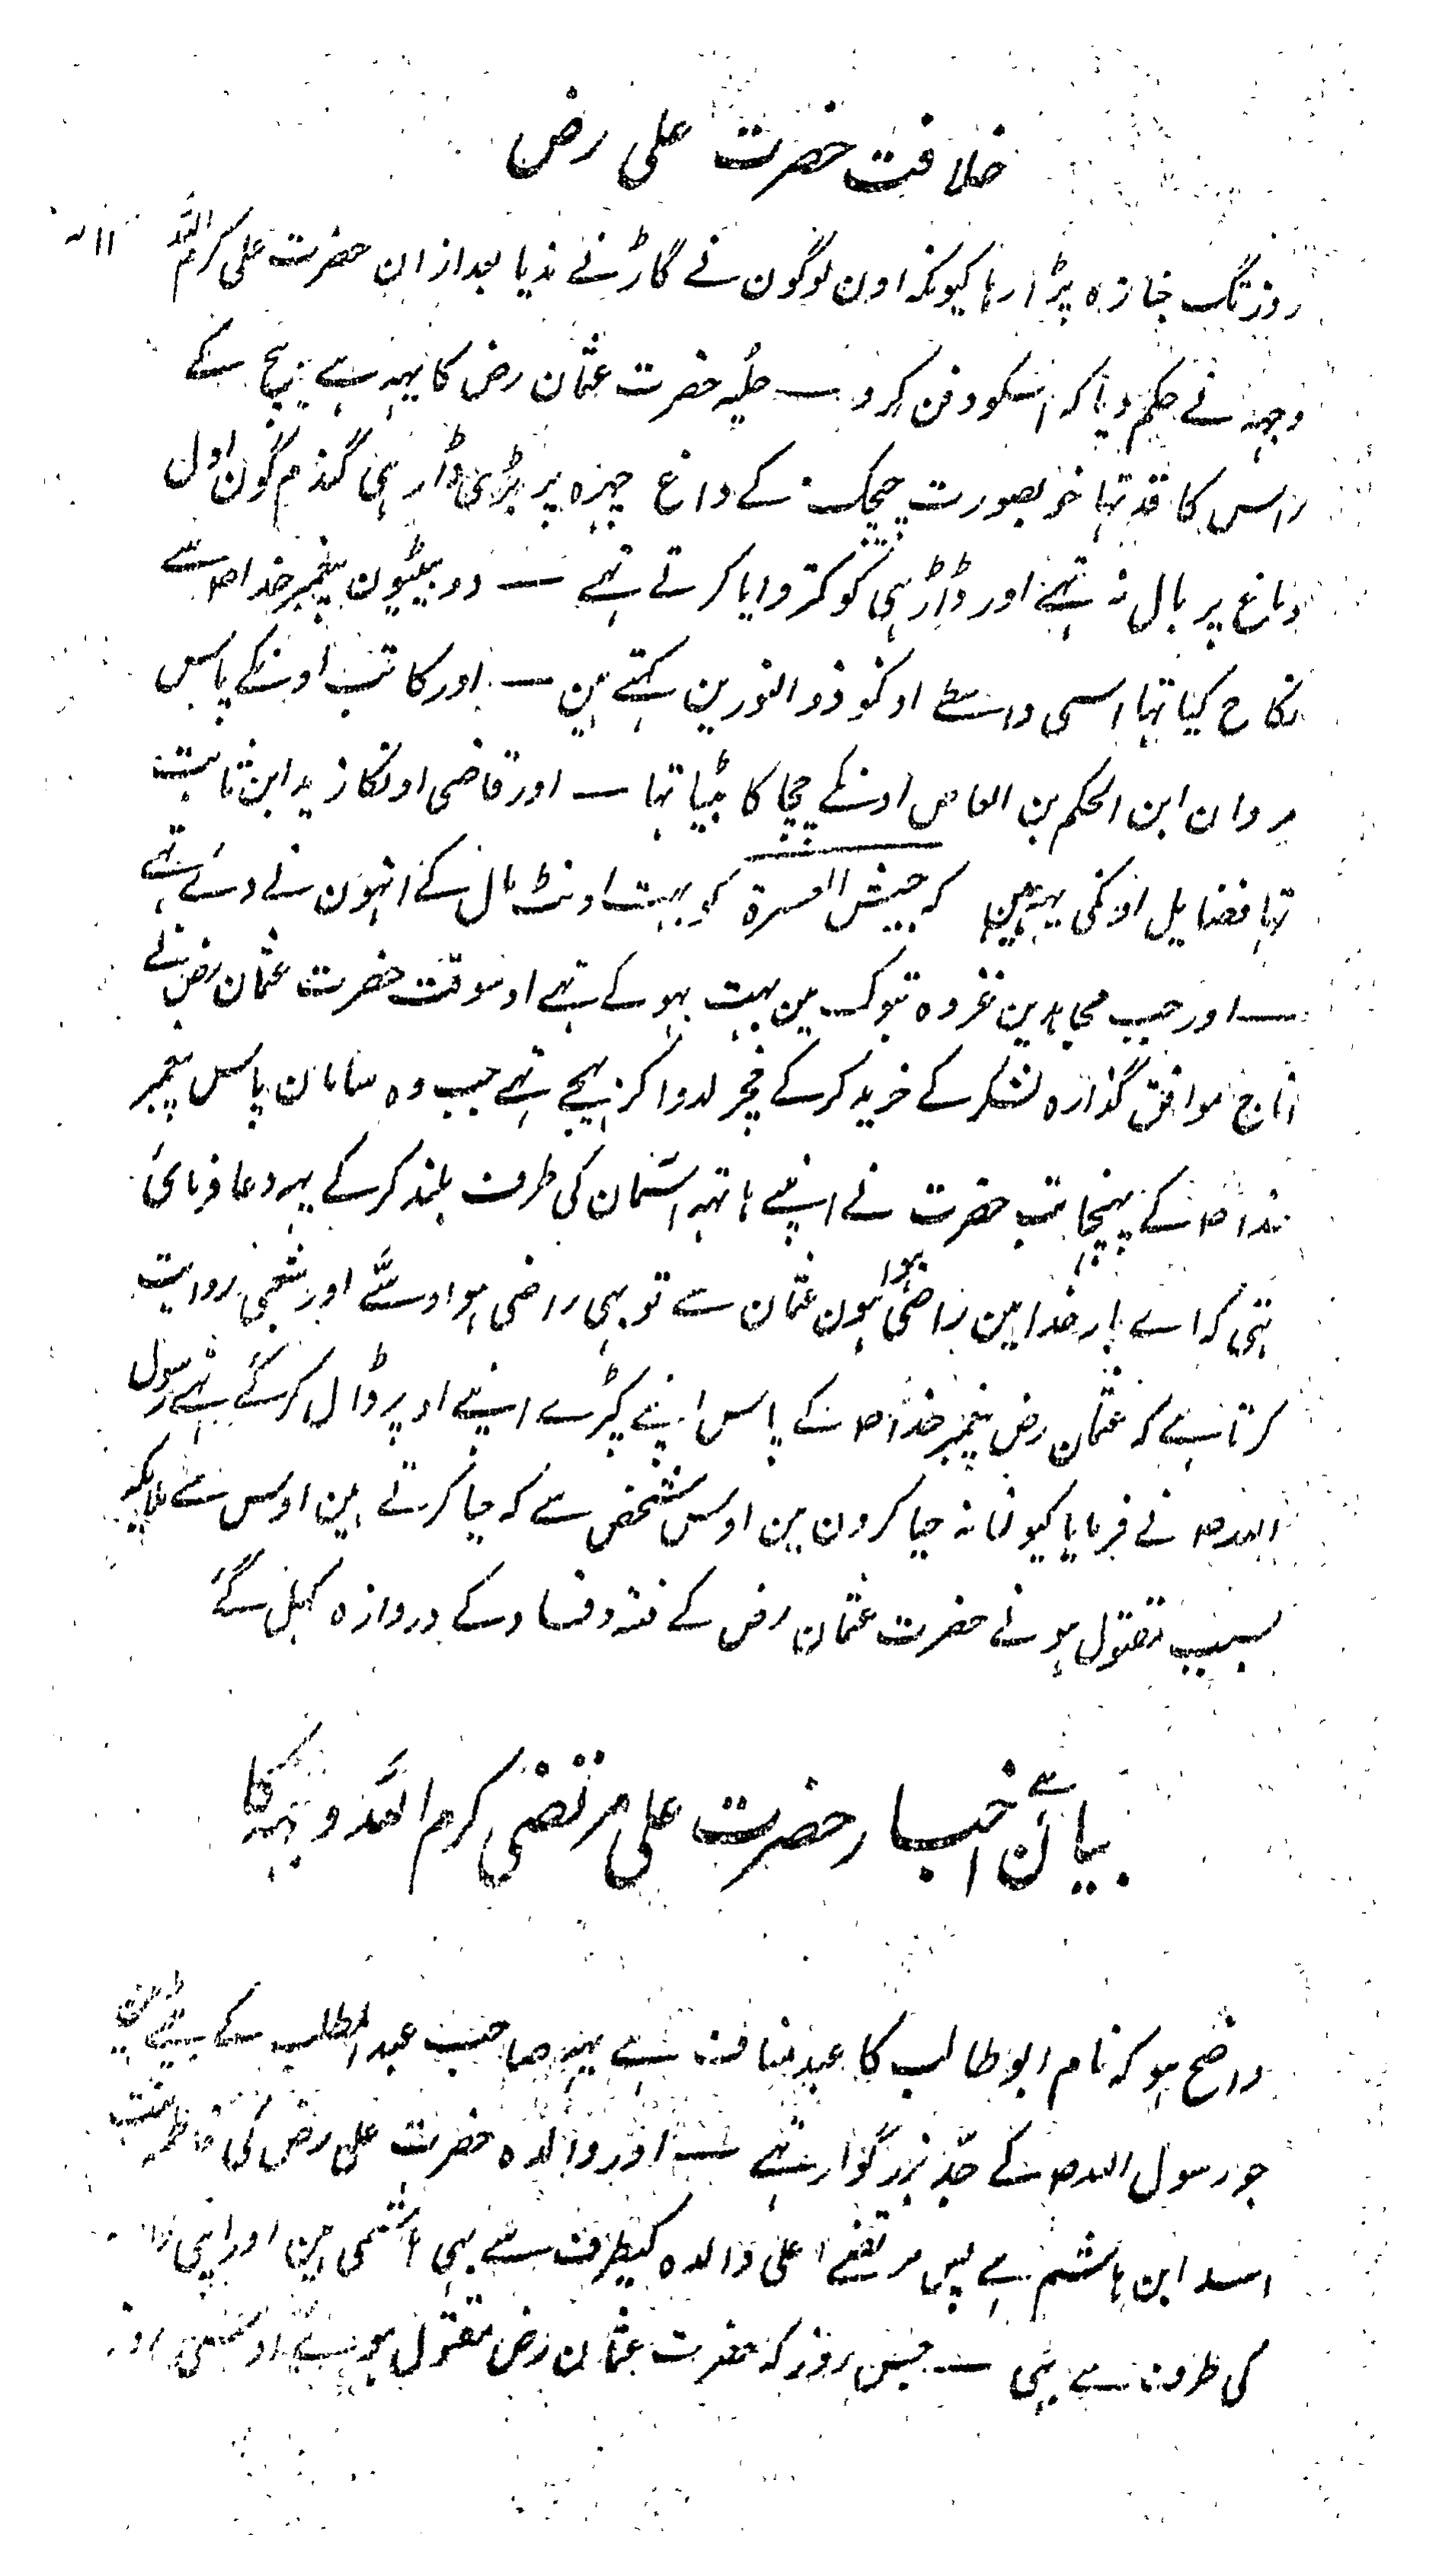 خلافت حضرت علی رض
روز تک جنازہ پڑا رہا کیونکہ اون لوگون نے گاڑنے ندیا بعد ازان حضرت علی کرم اللہ
وجہہ نے حکم دیا کہ اسکو دفن کرو — حلیہ حضرت عثمان رض کا یہہ ہے بیچ کے
راس کا قد تہا خوبصورت چیچک کے داغ چہرہ پر بڑی ڈارہی گندم گون اول
دماغ پر بال نہ تہے اور ڈاڑہی کو کتروایا کرتے تہے — دو بیٹیون پیغمبر خدا صلعم سے
نکاح کیا تہا اسی واسطے اونکو ذو النورین کہتے ہین — اور کاتب اونکے پاس
مروان ابن الحکم بن العاص اونکے چچا کا بیٹا تہا — اور قاضی اونکا زید ابن ثابت
تہا فضایل اونکی یہہ ہین کہ جیش العسرة کو بہت اونٹ مال کے انہون نے دئے تہے
— اور جب مجاہدین غزوہ تبوک مین بہت بہوکے تہے اوسوقت حضرت عثمان رض نے
اناج موافق گذارہ لشکر کے خرید کرکے خچر لدوا کر بہیجے تہے جب وہ سامان پاس پیغمبر
خدا صلعم کے پہنچا تب حضرت نے اپنے ہاتہہ آسمان کی طرف بلند کرکے یہہ دعا فرمائی
تہی کہ اے بار خدا مین راضی ہوا ہون عثمان سے تو بہی راضی ہو اوسے اور شعبی روایت
کرتا ہے کہ عثمان رض پیغمبر خدا صلعم کے پاس اپنے کپڑے اپنے اوپر ڈال کر گئے تہے رسول
اللہ صلعم نے فرمایا کیونکر نہ حیا کرون مین اوس شخص سے کہ حیا کرتے ہین اوس سے ملایکہ
بسبب مقتول ہونے حضرت عثمان رض کے فتنہ و فساد کے دروازہ کہل گئے
بیان اخبار حضرت علی مرتضی کرم اللہ وجہہ کا
واضح ہو کہ نام ابو طالب کا عبد مناف ہے یہہ صاحب عبد المطلب کے بیٹے ہین
جو رسول اللہ صلعم کے جد بزرگوار تہے — اور والدہ حضرت علی رض کی فاطمہ بنت
اسد ابن ہاشم ہے پس مرتضے علی والدہ کیطرف سے بہی ہاشمی ہین اور اپنی
کی طرف سے بہی — جس روز کہ حضرت عثمان رض مقتول ہوئے